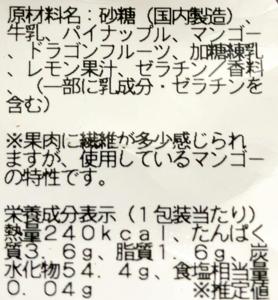 原材料名：砂糖（国内製造）、
牛乳、パイナップル、マンゴー
、ドラゴンフルーツ、加糖練乳
、レモン果汁、ゼラチン／香料
、（一部に乳成分・ゼラチンを
含む）
※果肉に繊維が多少感じられ
ますが、使用しているマンゴー
の特性です。
栄養成分表示（１包装当たり）
熱量２４０ｋｃａｌ、たんぱく
質３．６ｇ、脂質１．６ｇ、炭
水化物５４．４ｇ、食塩相当量
０．０４ｇ　※推定値